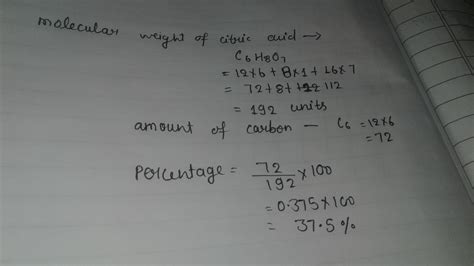 molecular weight of citric acid →
C6H8O7
= 12×6 + 8×1 + 16×7
= 72+8+ 112
= 192 units
amount of carbon — C6 = 12×6
= 72
Percentage = 72/192 ×100
= 0.375×100
= 37.5 %